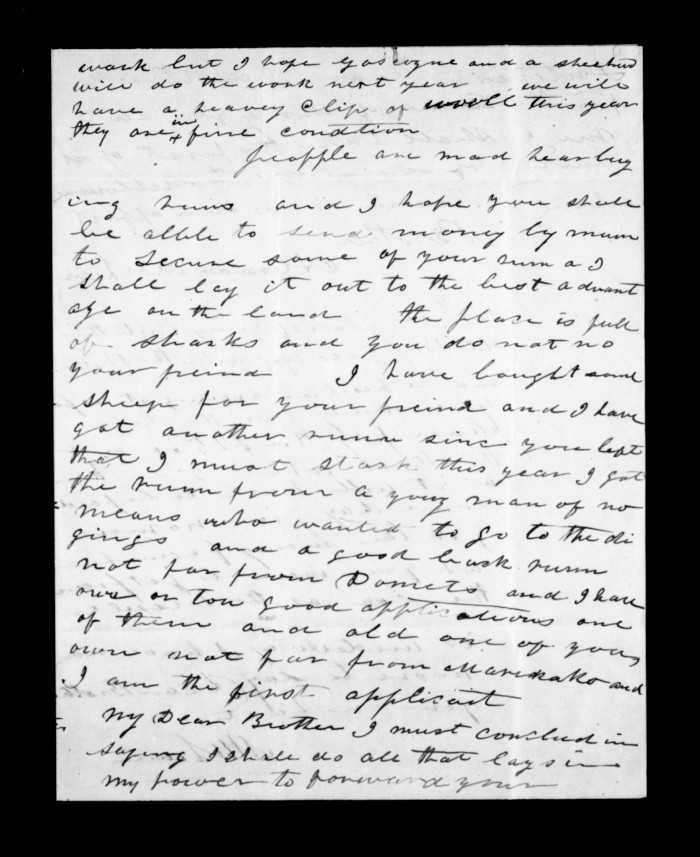 work but I hope Gascoyne and a sheeherd
will do the work next year we will
have a heavey Clip of wooll this year
they are in fine condtion
peopple are mad hear buy
ing runs and I hope you shall
be allble to send money by mum
to secure some of your run a I
shall lay it out to the best advant
age on the land the place is full
of sharks and you do not no
your freind I have bought some
sheep for your freind and I have
got another runn sinc you left
that I must stock this year I got
the runn from a youg man of no
means who wanted to go to the di
gings and a good back runn
not far from Domets and I have
one or tou good applications one
of them and old one of yours
own not far from Marikako and
I am the first applicant
My Dear Brother I must conclud in
saying I shall do all that lays in
my power to forward your